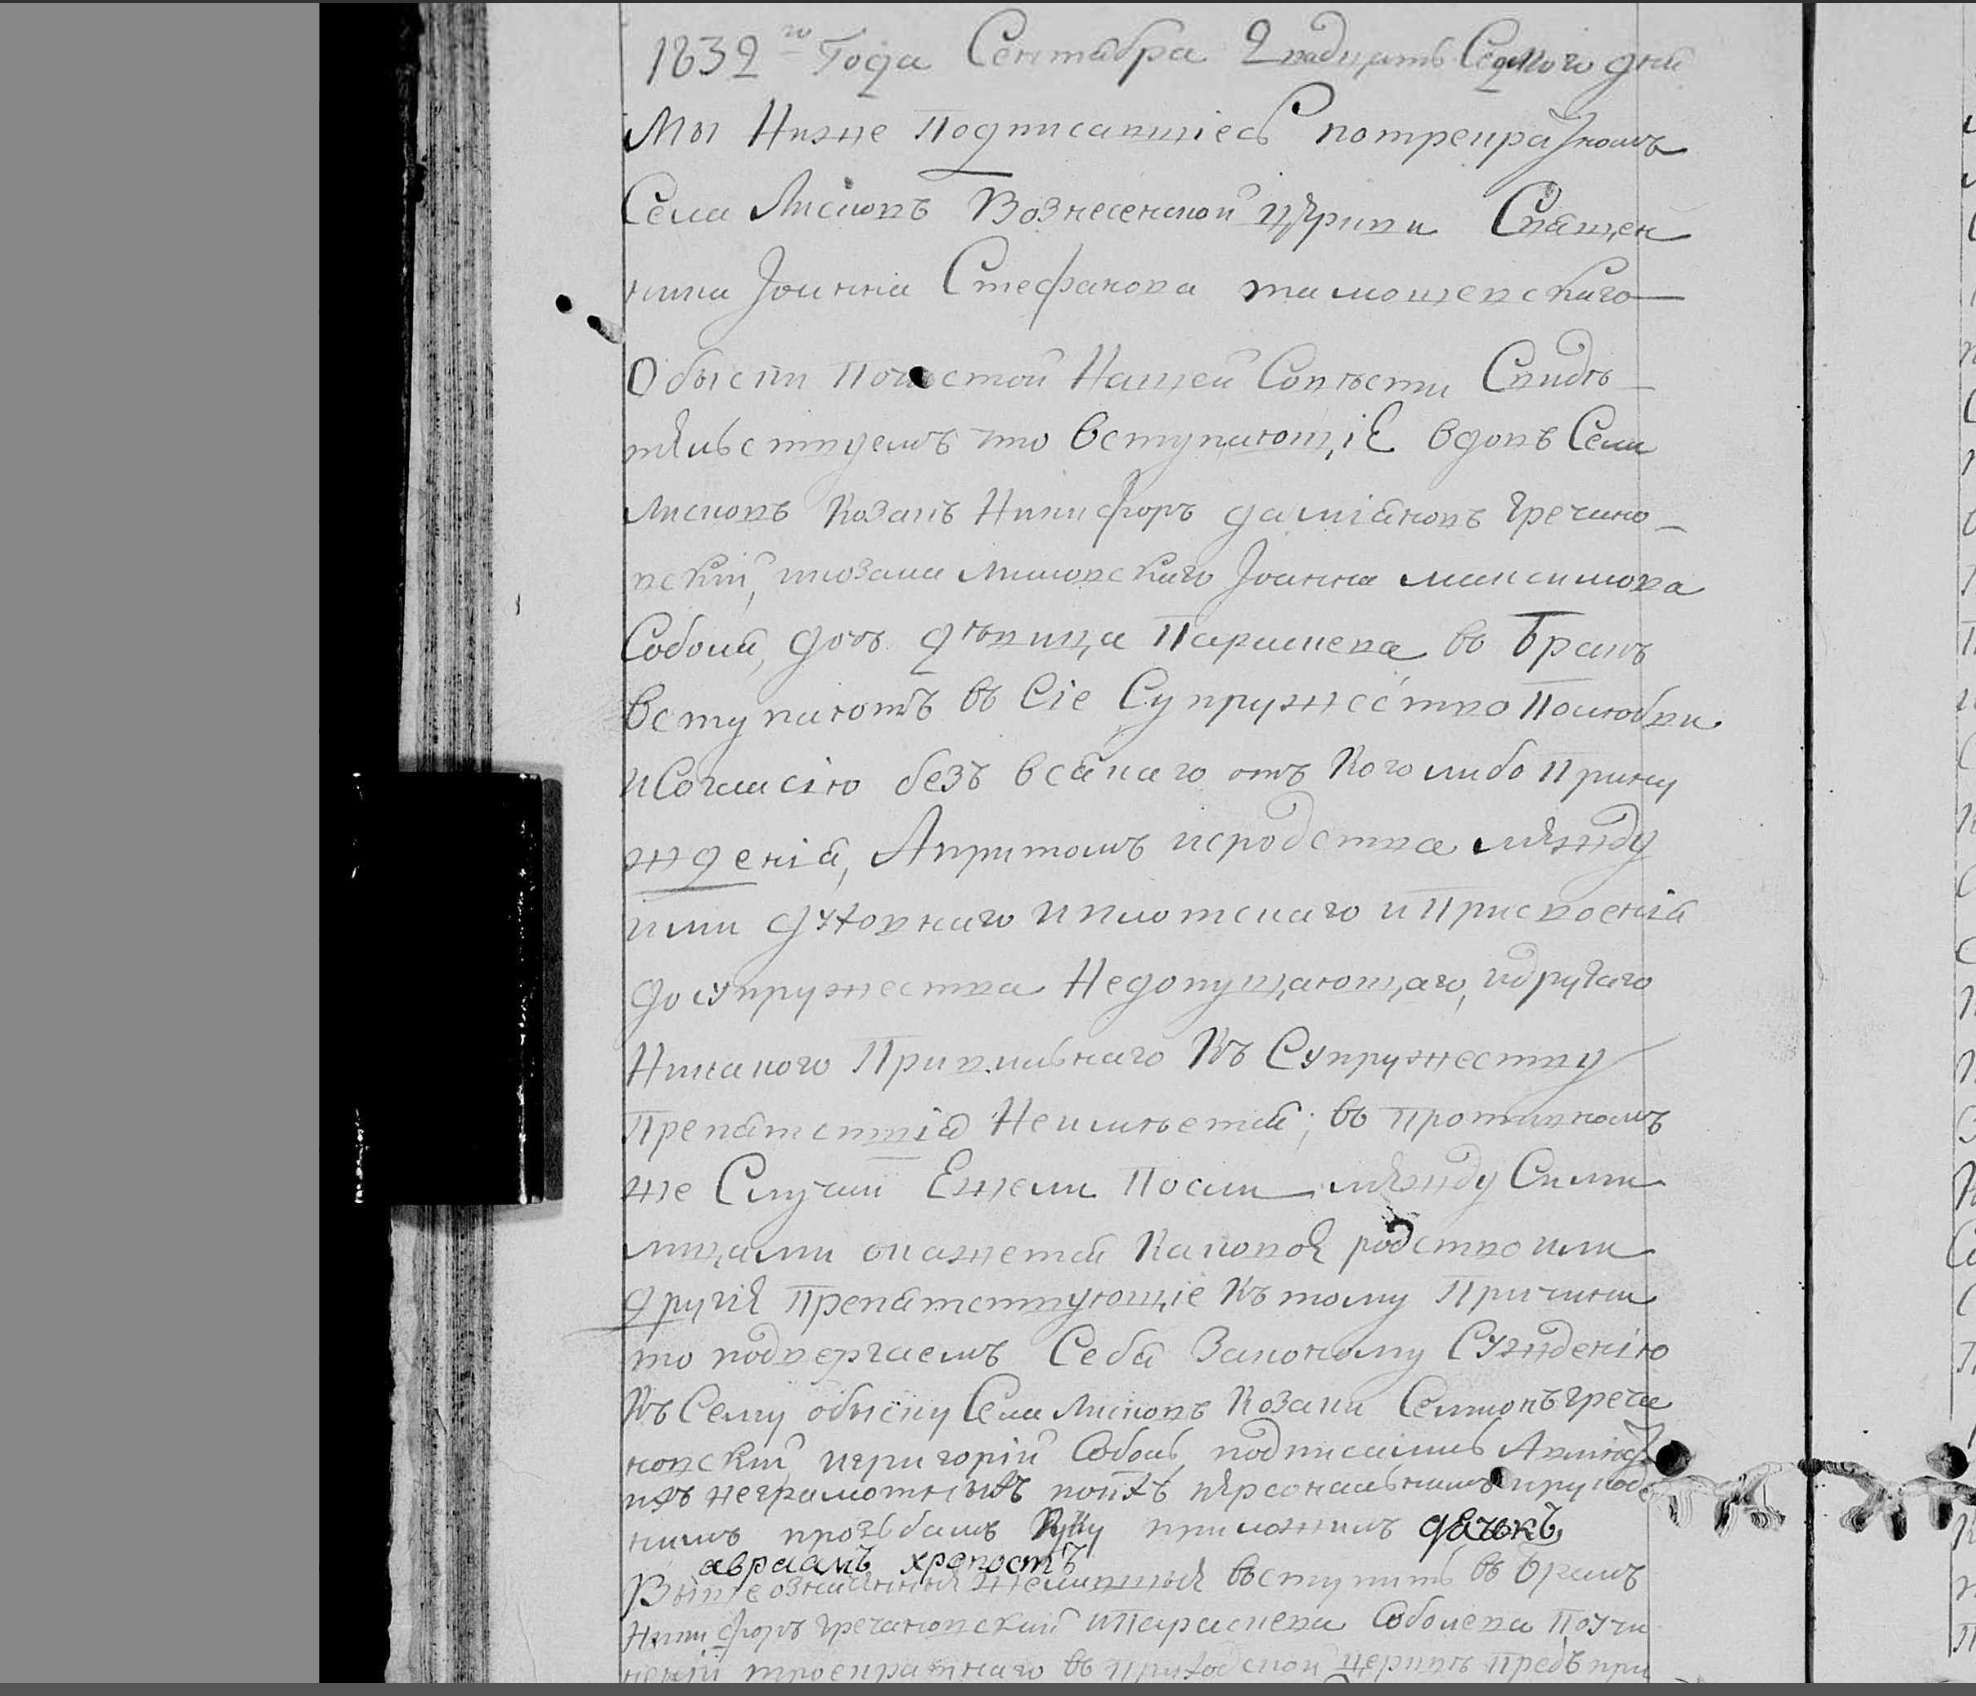 1832го Года Сентября Двадцать Седмого дня
Мы Ниже Подписавшіесь по требованію
Села Лисковъ Вознесенской Церкви Священ
ника Іоанна Стефанова тамошевскаго
Обыски По чистой Нашей Совѣсти Свидѣ
тельствуемъ что Вступающіе вдовъ Села
Лисковъ Козакъ Никифоръ даміановъ гречано
вскій, и козака Лисковскаго Іоанна максимова
Соболя, дочь дѣвица Параскева въ Бракъ
Вступаютъ въ Сіе Супружество По любви
и Согласію безъ всякаго отъ Кого либо Прину
жденія, А при томъ и сродства между
ими духовнаго и плотскаго и Присвоенія
до супружества Недопущающаго, и другаго
Никакого Правильнаго Къ Супружеству
Препятствія Не имѣется; въ противномъ
же Случаи Ежели После между Сими
лицами окажется Каковое родство или
другія препятствующіе Къ тому Причины
то подвергаемъ Себя Законному Сужденію
Къ Сему обыску Села Лисковъ Козаки Семионъ греча
новскій и григорій Соболь, подписались А вмѣсто
ихъ неграмотныхъ по ихъ персональнимъ и рукода
нимъ прозьбамъ Руку приложилъ дячокъ
авраамъ хрепостъ
Вышеозначенныя желающыя вступить въ бракъ
Никифоръ гречановский и Параскева Соболева По учи
неній троекратнаго въ приходской церквѣ предъ при